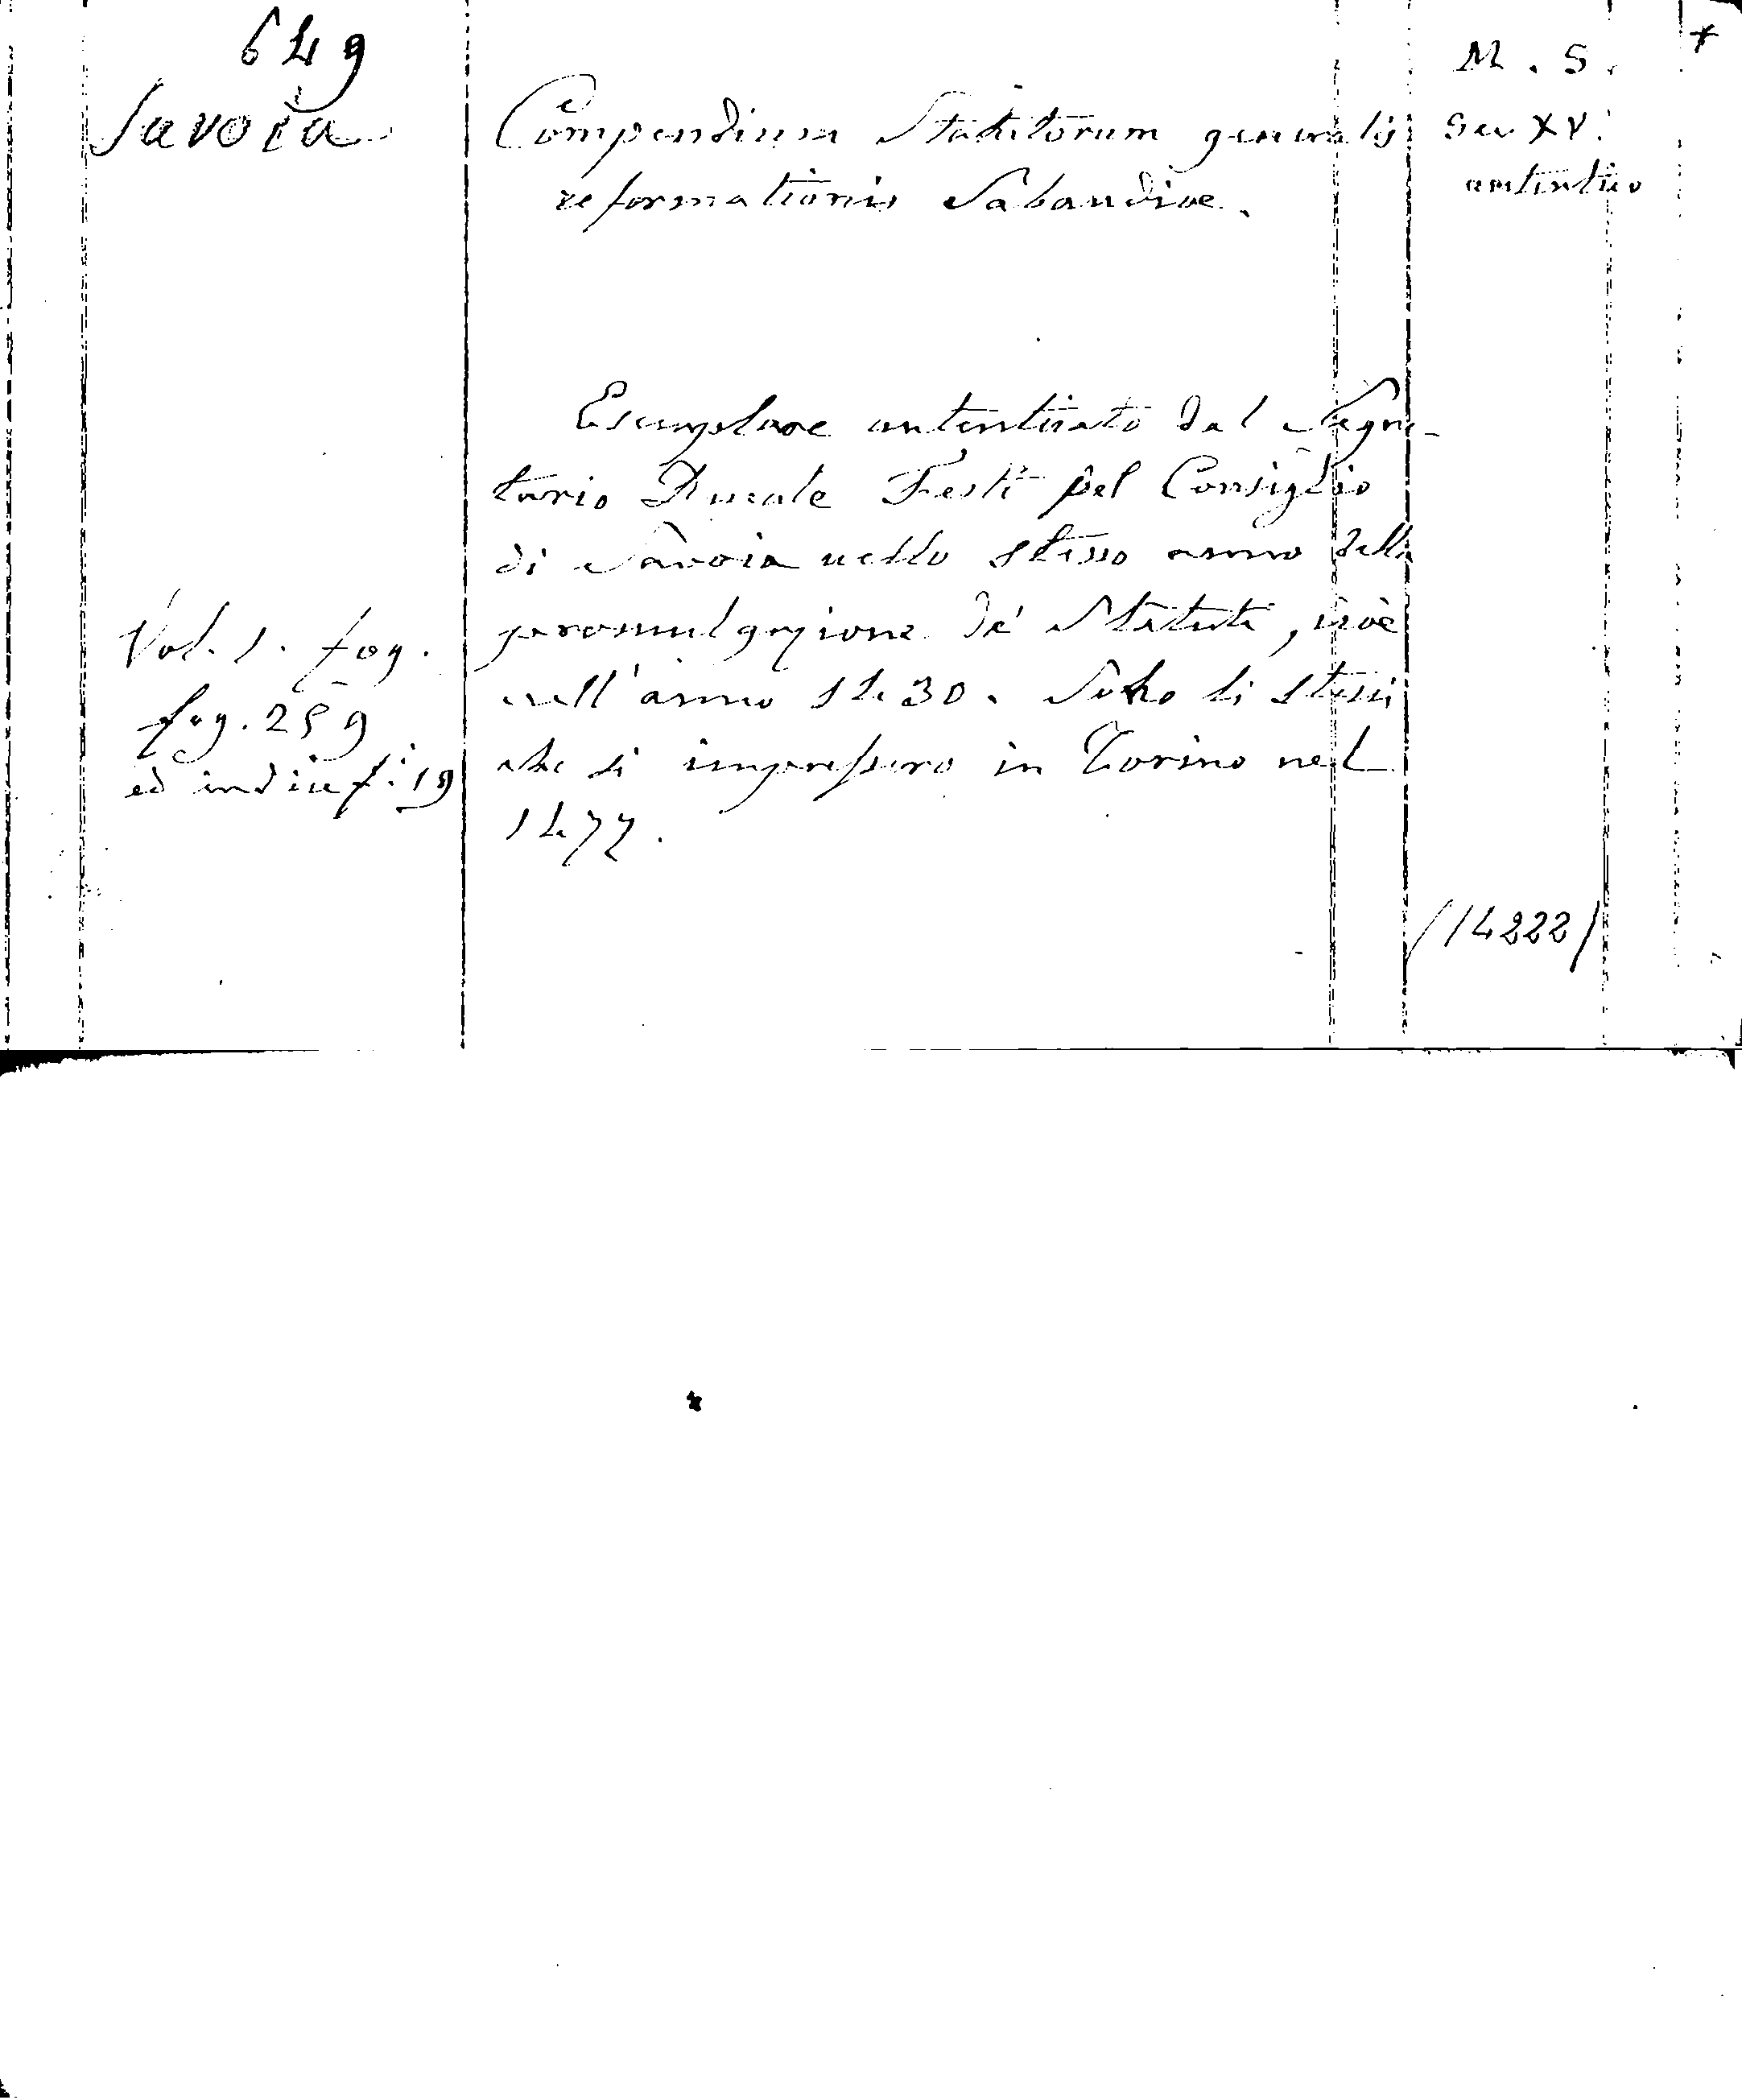 649
Savoia
Compendium Statutorum generalis
reformationis Sabaudiae.
M. S.
Sec XV.
autentico
Esemplare autenticato dal Segre-
tario Ducale Festi pel Consiglio
di Savoia nello stesso anno della
promulgazione de' Statuti, cioè
nell'anno 1430. Sono li stessi
che si impressero in Torino nel
1477.
Vol. 1. fog.
fog. 259
ed indice f.i 19
(14222)